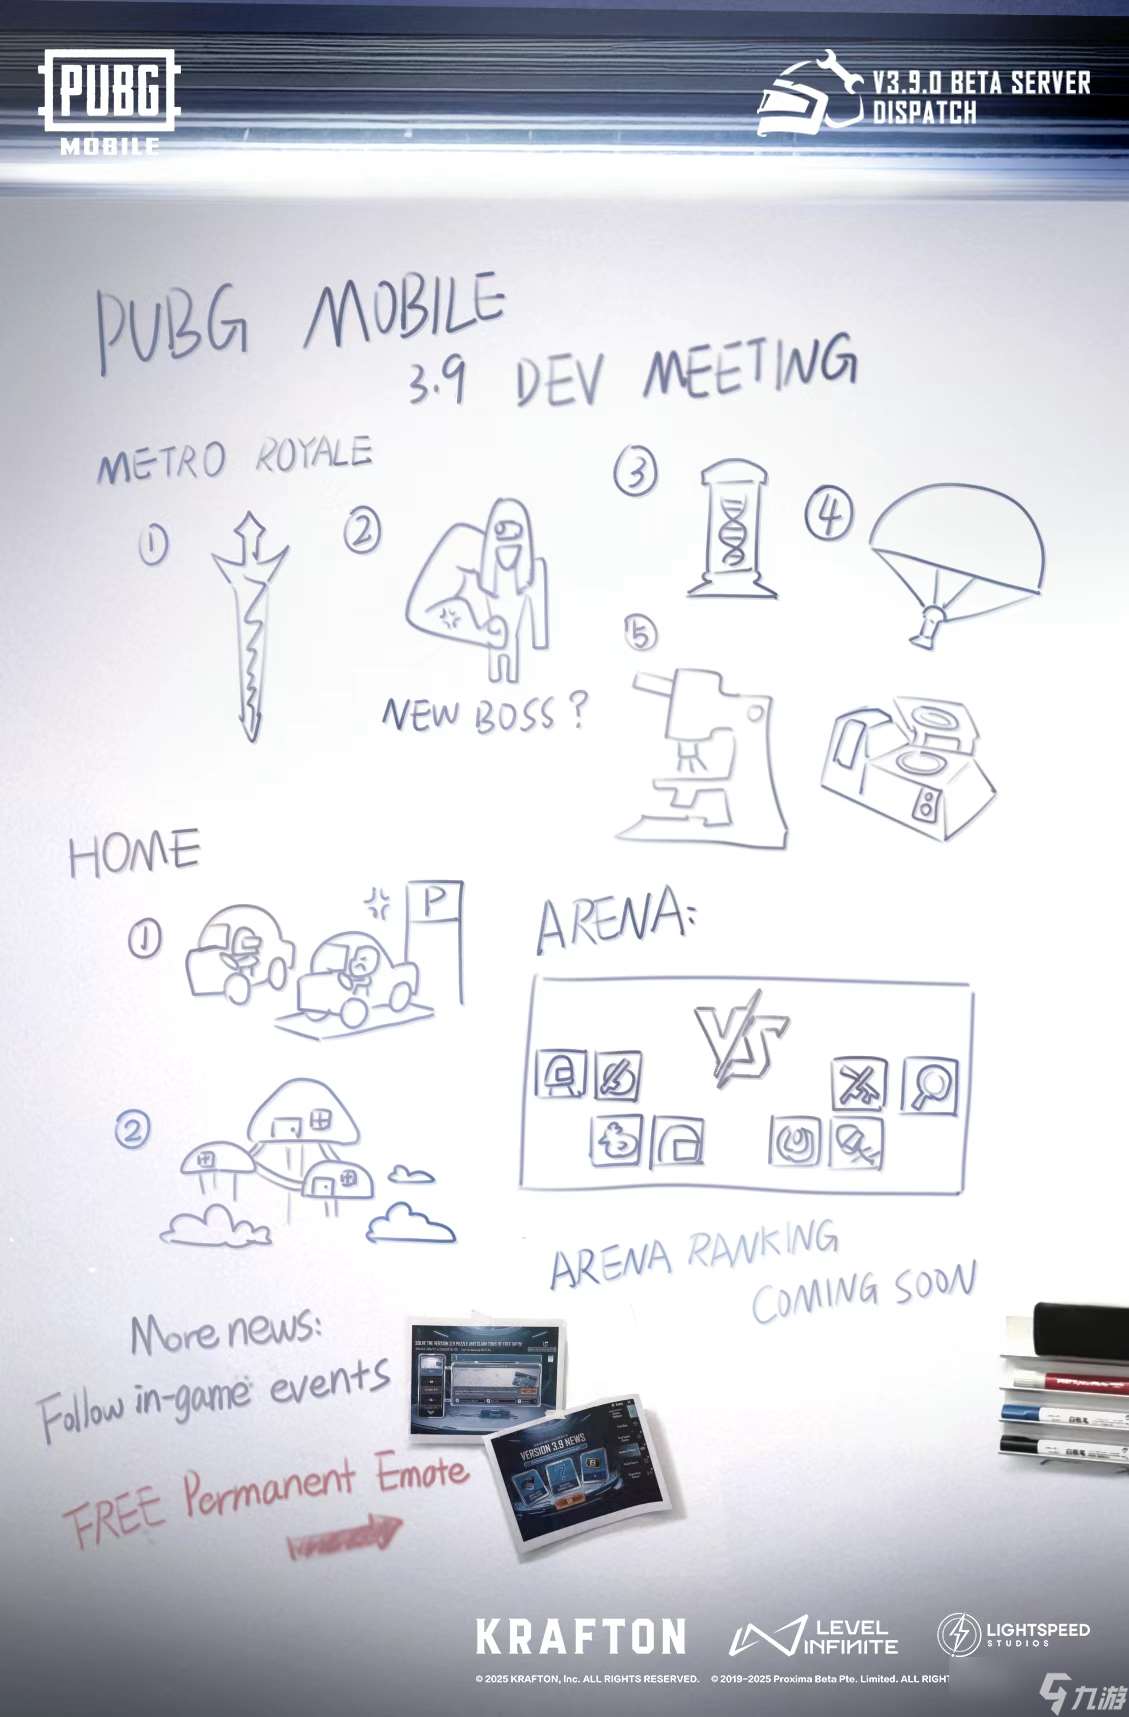 PUBG
MOBILE
V3.9.0 BETA SERVER
DISPATCH
PUBG MOBILE
3.9 DEV MEETING
METRO ROYALE
①
②
NEW BOSS?
③
④
⑤
HOME
①
P
②
ARENA:
VS
ARENA RANKING
COMING SOON
More news:
Follow in-game events
FREE Permanent Emote
VERSION 3.9 NEWS
KRAFTON
LEVEL
INFINITE
LIGHTSPEED
STUDIOS
© 2025 KRAFTON, Inc. ALL RIGHTS RESERVED. © 2019-2025 Proxima Beta Pte. Limited. ALL RIGHT
九游